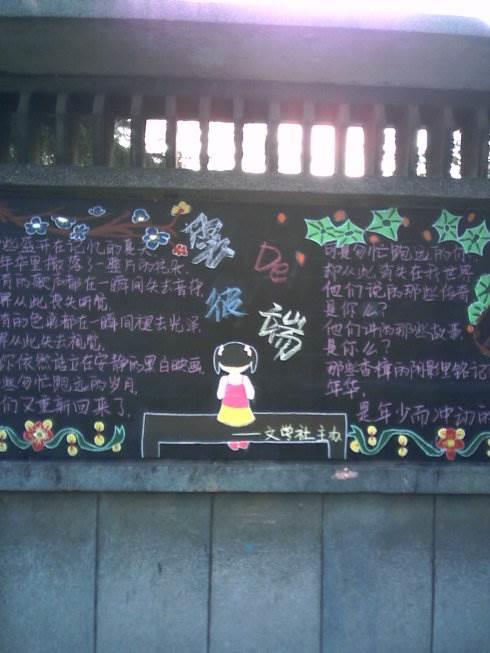 些盛开在记忆的夏天
年华里散落了一整片的花朵
有的歌声都在一瞬间失去音符
界从此丧失听觉
有的色角都在一瞬间褪去光泽
界从此失去视觉
你依然站立在安静的黑白映画
些匆忙跑远的岁月
们又重新回来了
De
彼
端
文学社 主办
可是匆忙跑远的你
却从此消失在我世界
他们说的那些传奇
是你么？
他们叫的那些故事
是你么？
那些香樟的阴影里铭记
年华,
是年少而冲动的